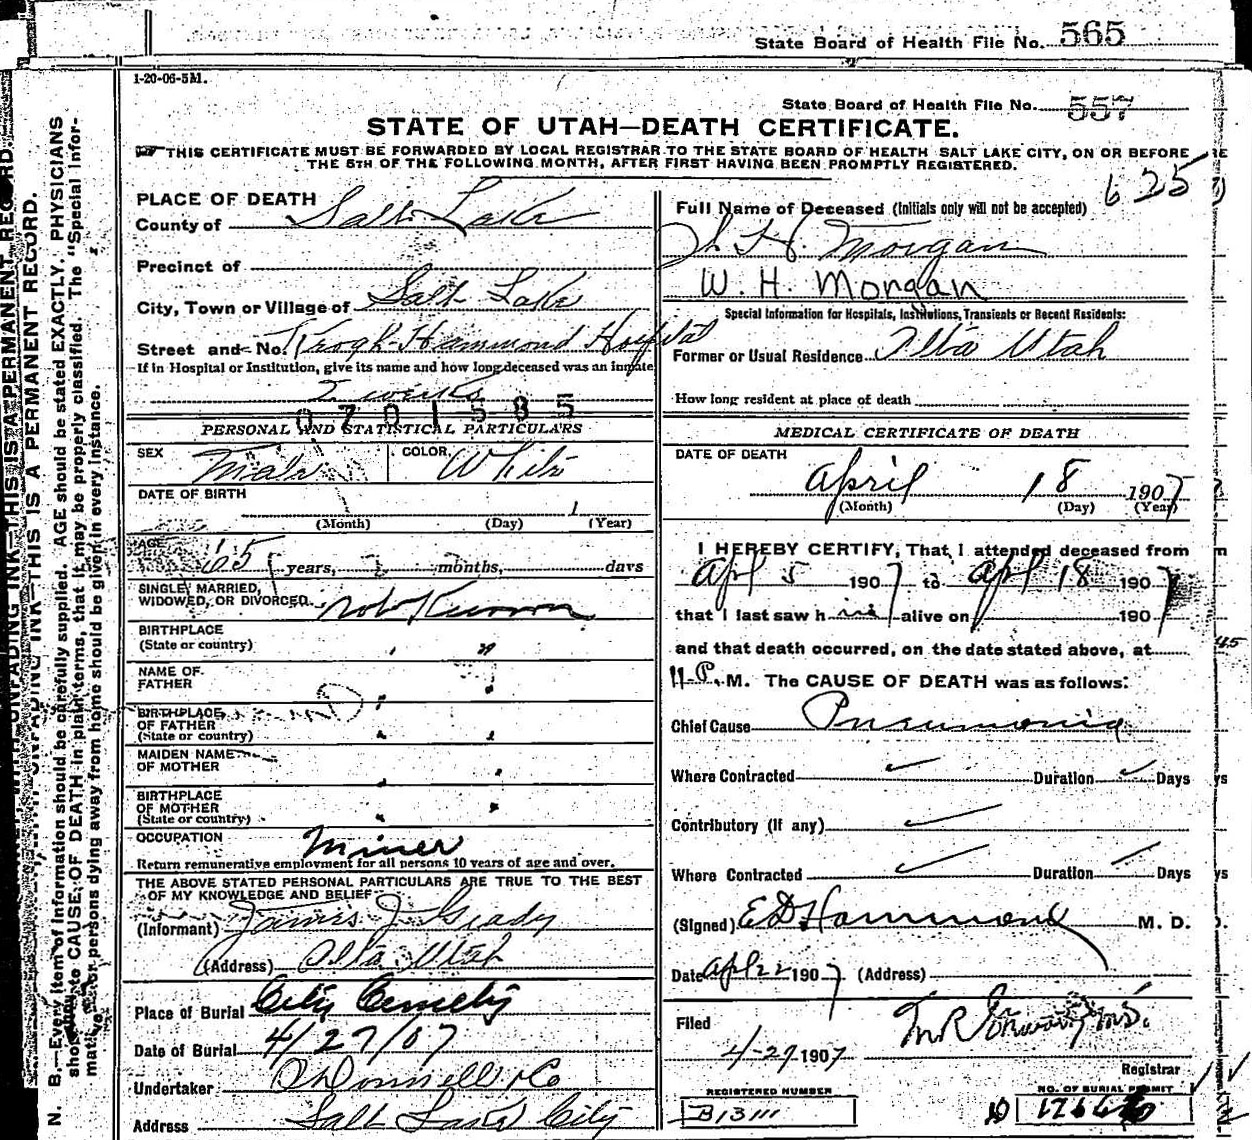 State Board of Health File No. 565
1-20-06-5M.
State Board of Health File No. 557
STATE OF UTAH—DEATH CERTIFICATE.
THIS CERTIFICATE MUST BE FORWARDED BY LOCAL REGISTRAR TO THE STATE BOARD OF HEALTH SALT LAKE CITY, ON OR BEFORE
THE 5TH OF THE FOLLOWING MONTH, AFTER FIRST HAVING BEEN PROMPTLY REGISTERED.
625
PLACE OF DEATH
County of Salt Lake
Precinct of
City, Town or Village of Salt Lake
Street and No. Keogh-Hammond Hospital
If in Hospital or Institution, give its name and how long deceased was an inmate
2 weeks
0701585
PERSONAL AND STATISTICAL PARTICULARS
SEX Male COLOR White
DATE OF BIRTH
(Month) (Day) 1 (Year)
AGE 65 years, months, days
SINGLE, MARRIED,
WIDOWED, OR DIVORCED. not Known
BIRTHPLACE
(State or country) " "
NAME OF
FATHER " "
BIRTHPLACE
OF FATHER
(State or country) " "
MAIDEN NAME
OF MOTHER " "
BIRTHPLACE
OF MOTHER
(State or country) " "
OCCUPATION Miner
Return remunerative employment for all persons 10 years of age and over.
THE ABOVE STATED PERSONAL PARTICULARS ARE TRUE TO THE BEST
OF MY KNOWLEDGE AND BELIEF
(Informant) James J. Grady
(Address) Alta Utah
Place of Burial City Cemetery
Date of Burial 4/27/07
Undertaker O'Donnell & Co
Address Salt Lake City
Full Name of Deceased (Initials only will not be accepted)
H. Morgan
W. H. Morgan
Special Information for Hospitals, Institutions, Transients or Recent Residents:
Former or Usual Residence Alta Utah
How long resident at place of death
MEDICAL CERTIFICATE OF DEATH
DATE OF DEATH
April 18 1907
(Month) (Day) (Year)
I HEREBY CERTIFY, That I attended deceased from
Apl 5 1907 to Apl 18 1907
that I last saw him alive on 1907
and that death occurred, on the date stated above, at
11 P. M. The CAUSE OF DEATH was as follows:
Chief Cause Pneumonia
Where Contracted ✓ Duration ✓ Days
Contributory (if any) ✓
Where Contracted ✓ Duration ✓ Days
(Signed) E D Hammond M. D.
Date Apl 22 1907 (Address)
Filed
4-27 1907
Registrar
REGISTERED NUMBER
B13111
NO. OF BURIAL PERMIT
N. B.—Every item of information should be carefully supplied. AGE should be stated EXACTLY. PHYSICIANS
should state CAUSE OF DEATH in plain terms, that it may be properly classified. The "Special Infor-
mation" for persons dying away from home should be given in every instance.
UNFADING INK—THIS IS A PERMANENT RECORD.
UNFADING INK—THIS IS A PERMANENT RECORD.